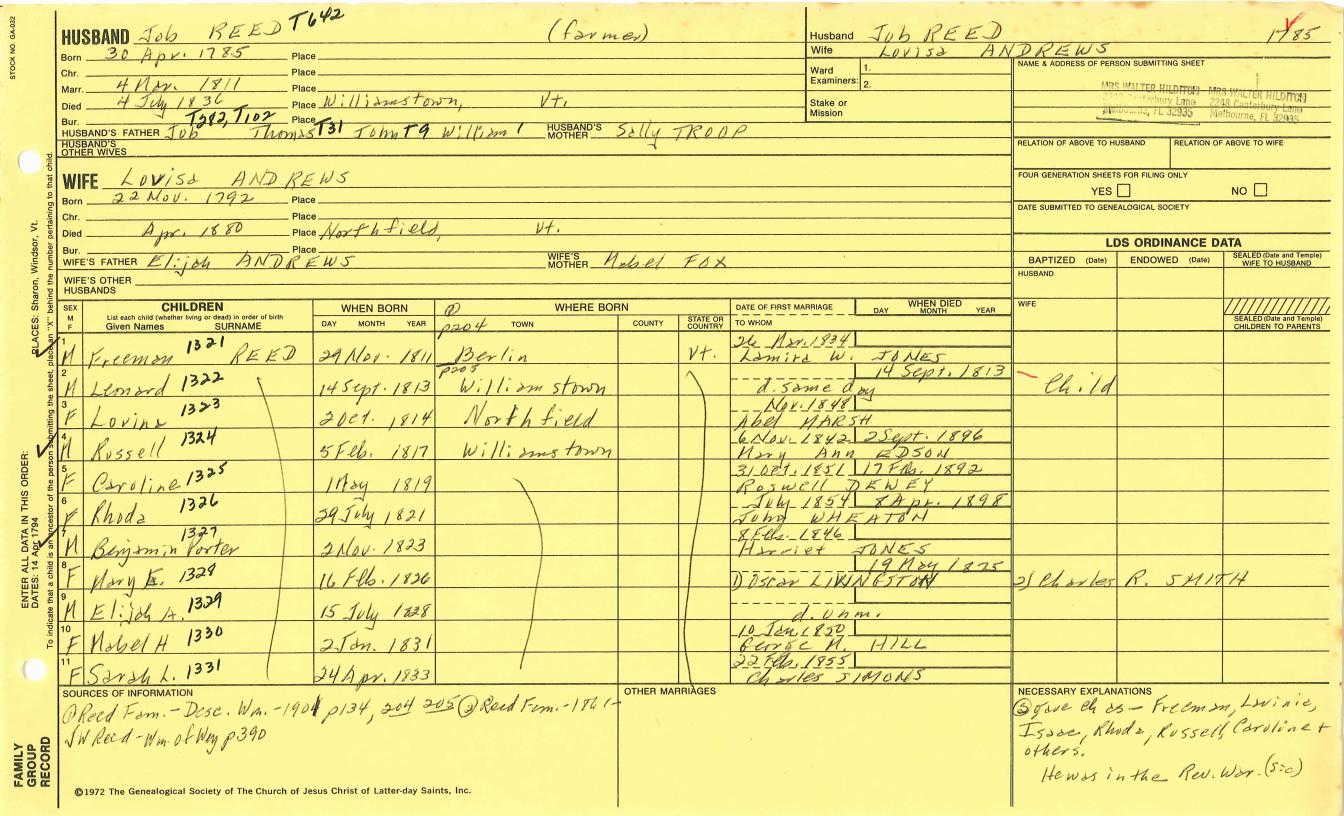 STOCK NO. GA-032
HUSBAND Job REED T642 (farmer)
Husband Job REED 1785
Wife Lovisa ANDREWS
Born 30 Apr. 1785 Place
Chr. Place
Marr. 4 Mar. 1811 Place
Died 4 July 1836 Place Williamstown, Vt.
Bur. Place
T282, T102
HUSBAND'S FATHER Job Thomas T31 John T9 William 1 HUSBAND'S MOTHER Sally TROOP
HUSBAND'S OTHER WIVES
Ward Examiners: 1.
2.
Stake or Mission
NAME & ADDRESS OF PERSON SUBMITTING SHEET
MRS WALTER HILDITCH MRS WALTER HILDITCH
2248 Canterbury Lane
Melbourne, FL 32935 Melbourne, FL 32935
RELATION OF ABOVE TO HUSBAND RELATION OF ABOVE TO WIFE
FOUR GENERATION SHEETS FOR FILING ONLY
YES NO
DATE SUBMITTED TO GENEALOGICAL SOCIETY
WIFE Lovisa ANDREWS
Born 22 Nov. 1792 Place
Chr. Place
Died Apr. 1880 Place Northfield, Vt.
Bur. Place
WIFE'S FATHER Elijah ANDREWS WIFE'S MOTHER Mabel FOX
WIFE'S OTHER HUSBANDS
LDS ORDINANCE DATA
BAPTIZED (Date) ENDOWED (Date) SEALED (Date and Temple) WIFE TO HUSBAND
HUSBAND
WIFE
SEALED (Date and Temple) CHILDREN TO PARENTS
SEX M F
CHILDREN
List each child (whether living or dead) in order of birth
Given Names SURNAME
WHEN BORN
DAY MONTH YEAR
WHERE BORN
① p204 TOWN COUNTY STATE OR COUNTRY
DATE OF FIRST MARRIAGE
TO WHOM
WHEN DIED
DAY MONTH YEAR
1 M Freeman 1321 REED 29 Nov. 1811 Berlin Vt. 26 Mar. 1834
Lamira W. JONES
2 M Leonard 1322 14 Sept. 1813 p205 Williamstown 14 Sept. 1813 Child
d. same day
3 F Lovina 1323 2 Oct. 1814 Northfield Nov. 1848
Abel MARSH
4 M Russell 1324 5 Feb. 1817 Williamstown 6 Nov. 1842 2 Sept. 1896
Mary Ann EDSON
5 F Caroline 1325 1 May 1819 31 Oct. 1851 17 Feb. 1892
Roswell DEWEY
6 F Rhoda 1326 29 July 1821 July 1854 8 Apr. 1898
John WHEATON
7 M Benjamin Porter 1327 2 Nov. 1823 8 Feb. 1846
Harriet JONES
8 F Mary E. 1328 16 Feb. 1826 19 May 1825
1) Oscar LIVINGSTON 2) Charles R. SMITH
9 M Elijah A. 1329 15 July 1828
d. unm.
10 F Mabel H 1330 2 Jan. 1831 10 Jan. 1850
George M. HILL
11 F Sarah L. 1331 24 Apr. 1833 22 Feb. 1855
Charles SIMONS
SOURCES OF INFORMATION
① Reed Fam. - Desc. Wm. - 1901 p134, 204 205 ② Reed Fam. - 1861-
JW Reed - Wm of Wey p390
OTHER MARRIAGES
NECESSARY EXPLANATIONS
② gave ch as - Freeman, Lavinie,
Isaac, Rhoda, Russell, Caroline +
others.
He was in the Rev. War. (sic)
ENTER ALL DATA IN THIS ORDER:
DATES: 14 Apr 1794 PLACES: Sharon, Windsor, Vt.
To indicate that a child is an ancestor of the person submitting the sheet, place an "X" behind the number pertaining to that child.
FAMILY GROUP RECORD
©1972 The Genealogical Society of The Church of Jesus Christ of Latter-day Saints, Inc.